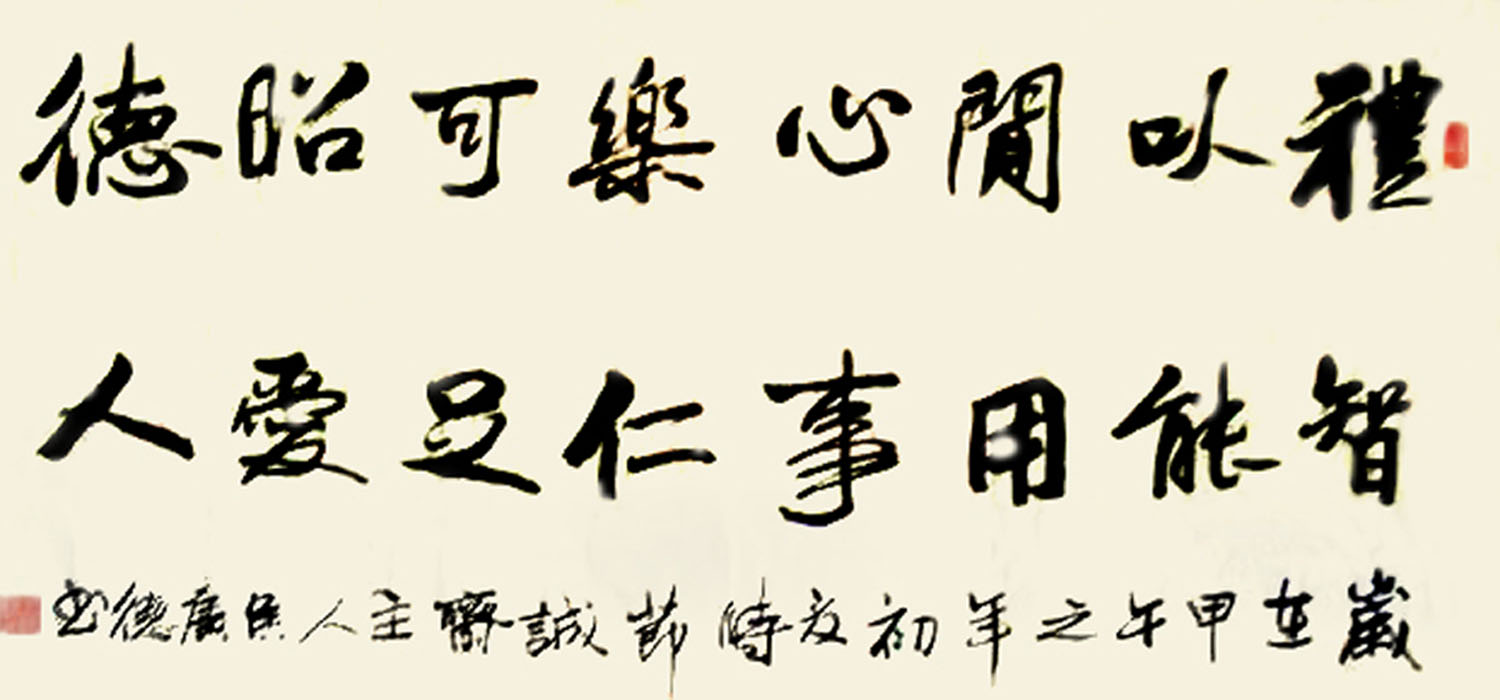 禮以閒心樂可昭德
智能用事仁足愛人
歲在甲午之年初夏時節誠齋主人吳廣德书